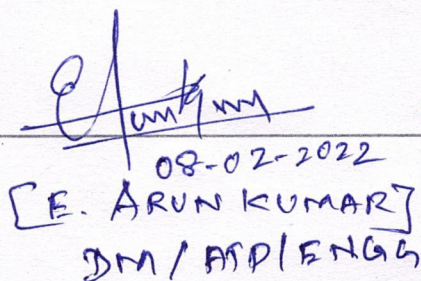 08-02-2022
[E. ARUN KUMAR]
DM/ATP/ENGG